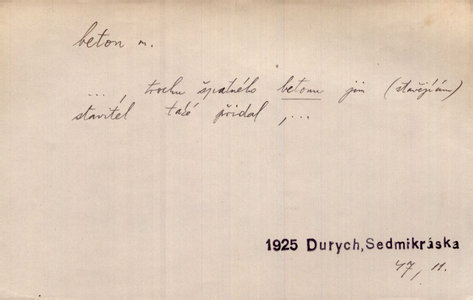 beton m.
..., trochu špatného betonu jim (stavějícím)
stavitel také přidal,...
1925 Durych, Sedmikráska
47, 11.